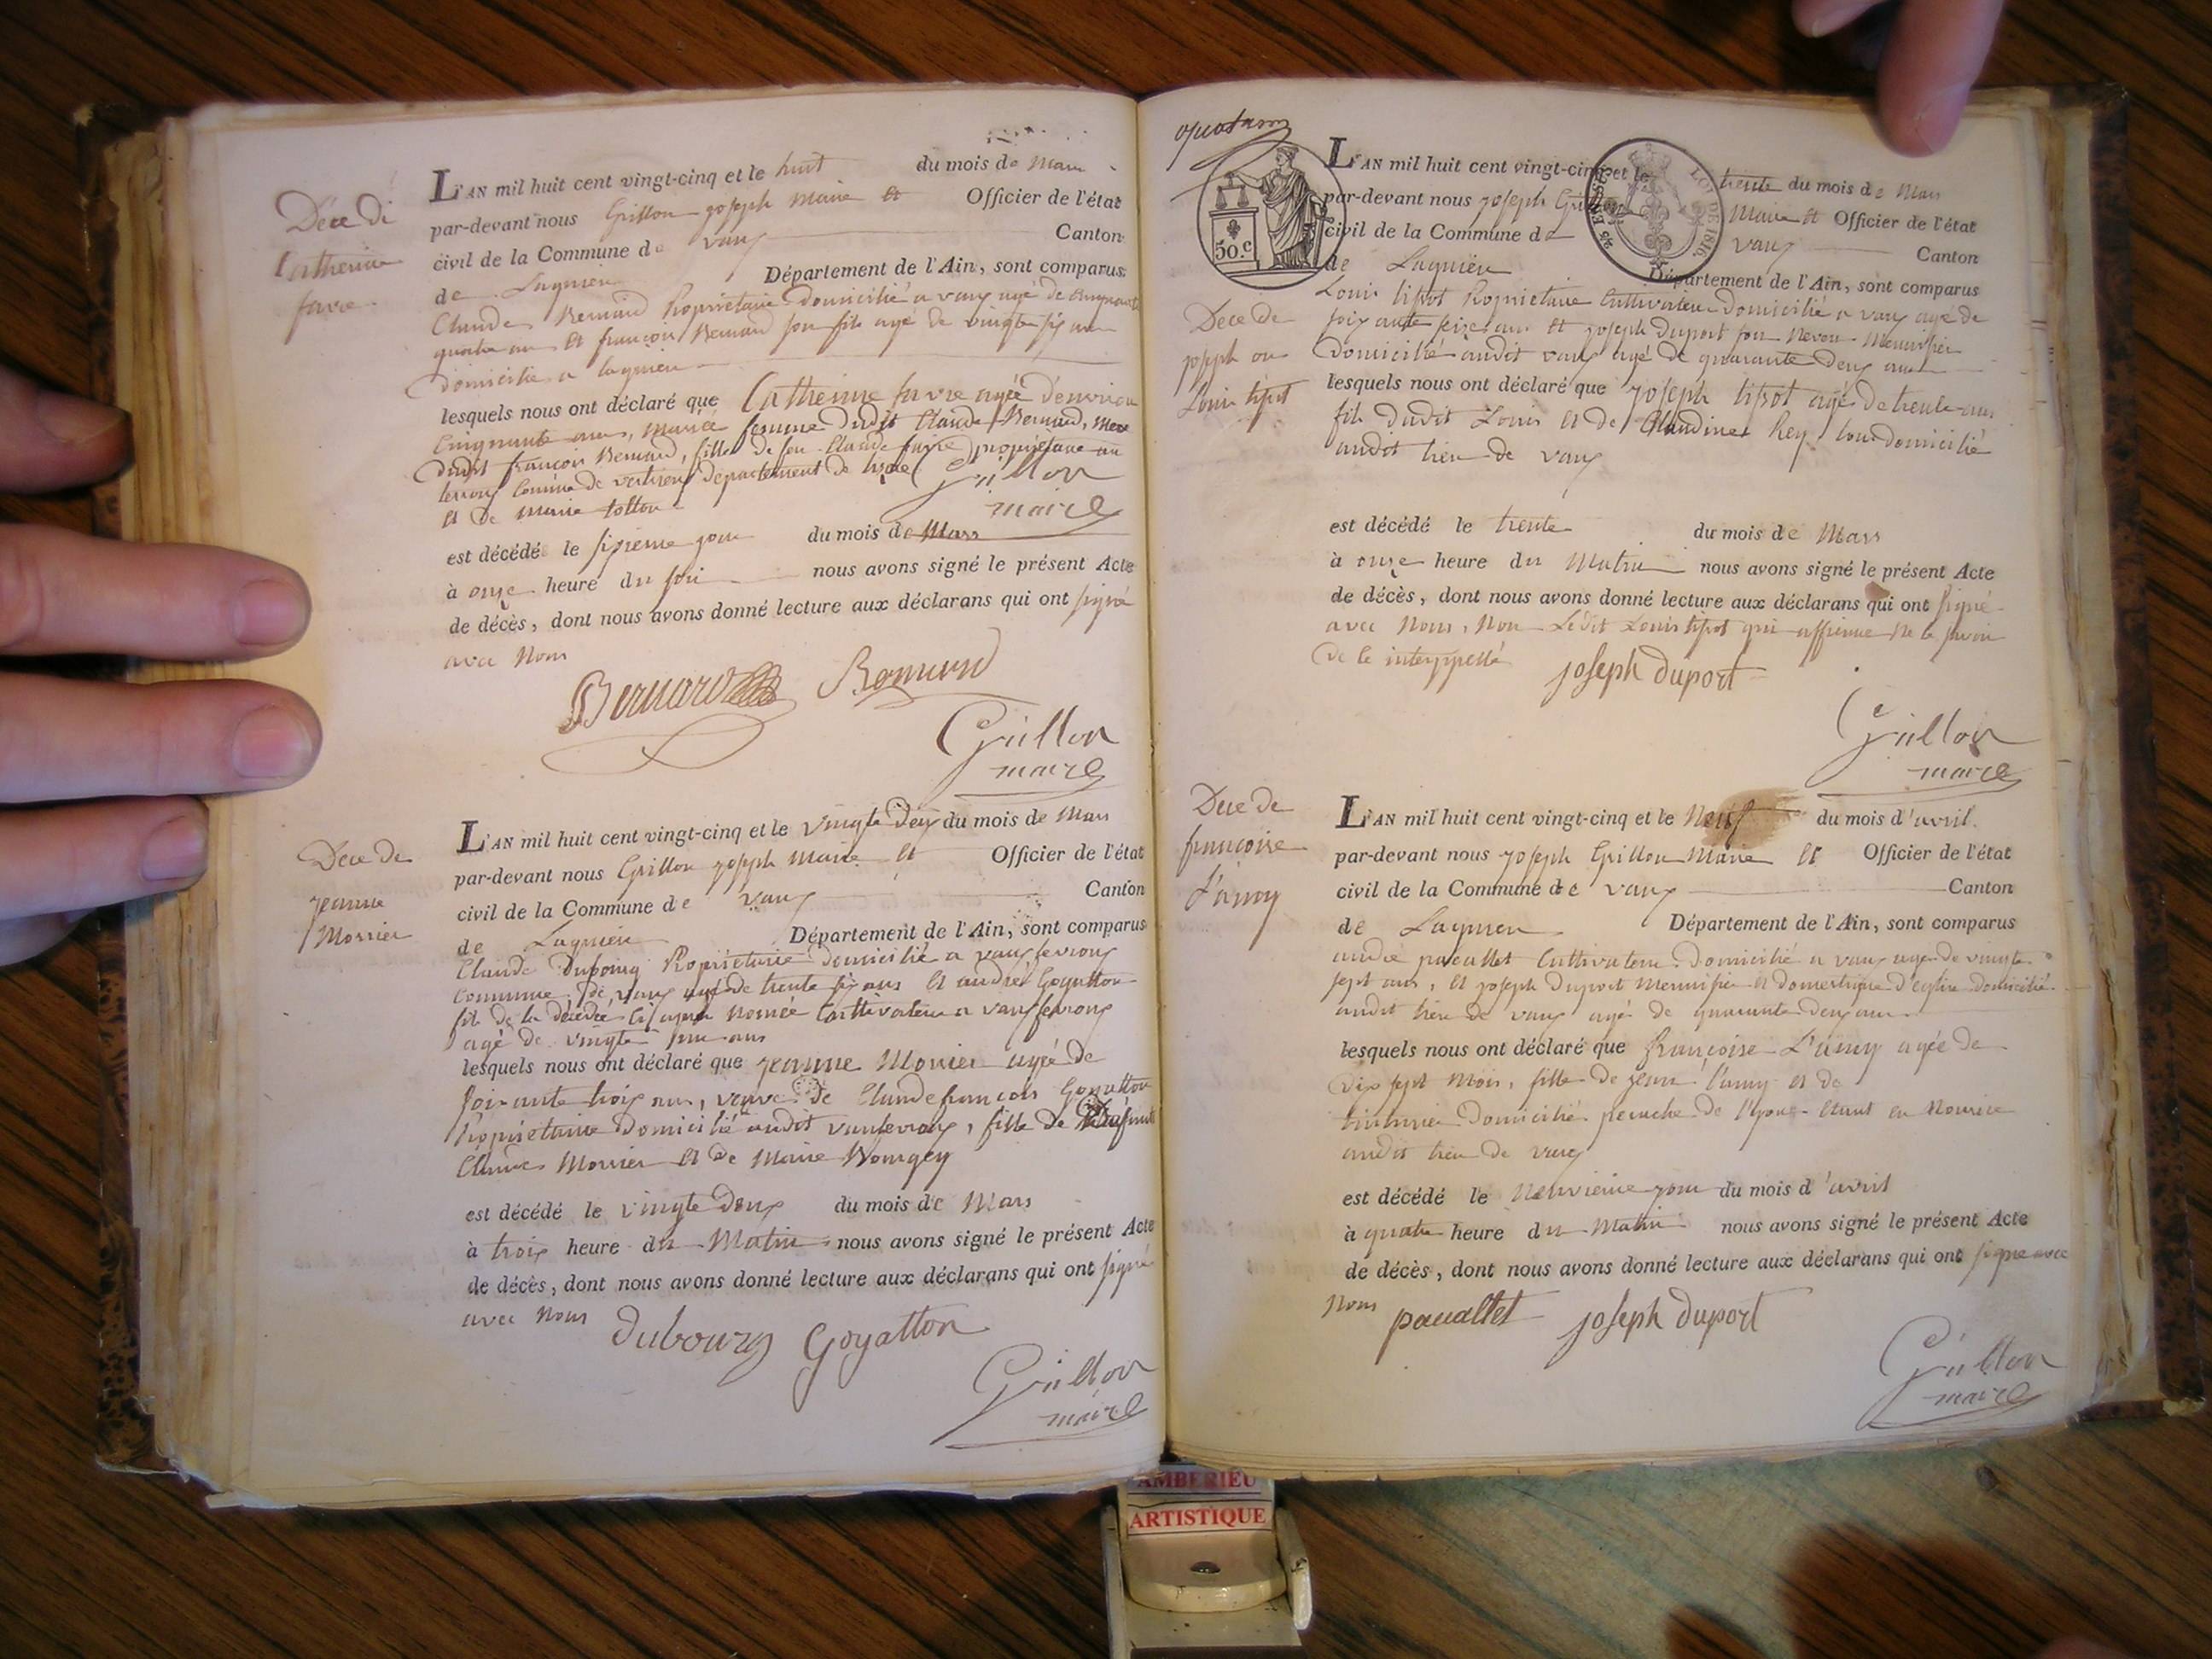 Déce de
Catherine
favre
L'AN mil huit cent vingt-cinq et le huit du mois de Mars
par-devant nous Grillon joseph Maire et Officier de l'état
civil de la Commune de vaux Canton
de Lagnieu Département de l'Ain, sont comparus
Claude Bernard Propriétaire domicilié a vaux agé de cinquante
quatre ans et françois Bernard son fils agé de vingte six ans
domicilié a lagnieu
lesquels nous ont déclaré que Catherine favre agée d'environ
Cinquante ans, mariée femme dudit Claude Bernard, mere
dudit françois Bernard, fille de feu Claude favre propriétaire au
commune de département de
et de marie
Grillon
maire
est décédé le sixieme jour du mois de Mars
à onze heure du soir nous avons signé le présent Acte
de décès, dont nous avons donné lecture aux déclarans qui ont signé
avec Nous
Bernard Bernard
Grillon
maire
Dece de
jeanne
Morrier
L'AN mil huit cent vingt-cinq et le vingte deux du mois de Mars
par-devant nous Grillon joseph Maire et Officier de l'état
civil de la Commune de vaux Canton
de Lagnieu Département de l'Ain, sont comparus
Claude Dubourg Propriétaire domicilié a vaux fevroux
Commune de vaux agé de trente six ans et andré Goyatton
fils de la décédée Cultivateur a vaux fevroux
agé de vingte ans
lesquels nous ont déclaré que jeanne Morrier agée de
soixante trois ans, veuve de Claude francois Goyatton
Propriétaire domicilié audit, fille de
Claude Morrier et de Marie
est décédé le vingte deux du mois de Mars
à trois heure du Matin nous avons signé le présent Acte
de décès, dont nous avons donné lecture aux déclarans qui ont signé
avec Nous
Dubourg Goyatton
Grillon
maire
50.c
LOI DE 1816.
Dece de
joseph ou
Louis tissot
L'AN mil huit cent vingt-cinq et le trente du mois de Mars
par-devant nous joseph Grillon Maire et Officier de l'état
civil de la Commune de vaux Canton
de Lagnieu Département de l'Ain, sont comparus
Louis tissot Propriétaire Cultivateur domicilié a vaux agé de
soixante seize ans et joseph Duport son Neveu Menuisier
domicilié audit vaux agé de quarante deux ans
lesquels nous ont déclaré que joseph tissot agé de trente ans
fils dudit Louis et de Claudine Rey tous domicilié
audit lieu de vaux
est décédé le trente du mois de Mars
à onze heure du Matin nous avons signé le présent Acte
de décès, dont nous avons donné lecture aux déclarans qui ont signé
avec Nous, Non Ledit Louis tissot qui affirme ne le savoir
de ce interppellé
joseph duport
Grillon
maire
Dece de
francoise
L'amy
L'AN mil huit cent vingt-cinq et le Neuf du mois d'avril
par-devant nous joseph Grillon Maire et Officier de l'état
civil de la Commune de vaux Canton
de Lagnieu Département de l'Ain, sont comparus
andré pacallet Cultivateur domicilié a vaux agé de vingte
sept ans, et joseph Duport Menuisier et domestique d'eglise domicilié
audit lieu de vaux agé de quarante deux ans
lesquels nous ont déclaré que françoise L'amy agée de
dix sept Mois, fille de jean l'amy et de
domicilié de Lyon etant en Nourice
audit lieu de vaux
est décédé le Neuvieme jour du mois d'avril
à quatre heure du Matin nous avons signé le présent Acte
de décès, dont nous avons donné lecture aux déclarans qui ont signe avec
Nous
pacallet joseph duport
Grillon
maire
AMBERIEU
ARTISTIQUE